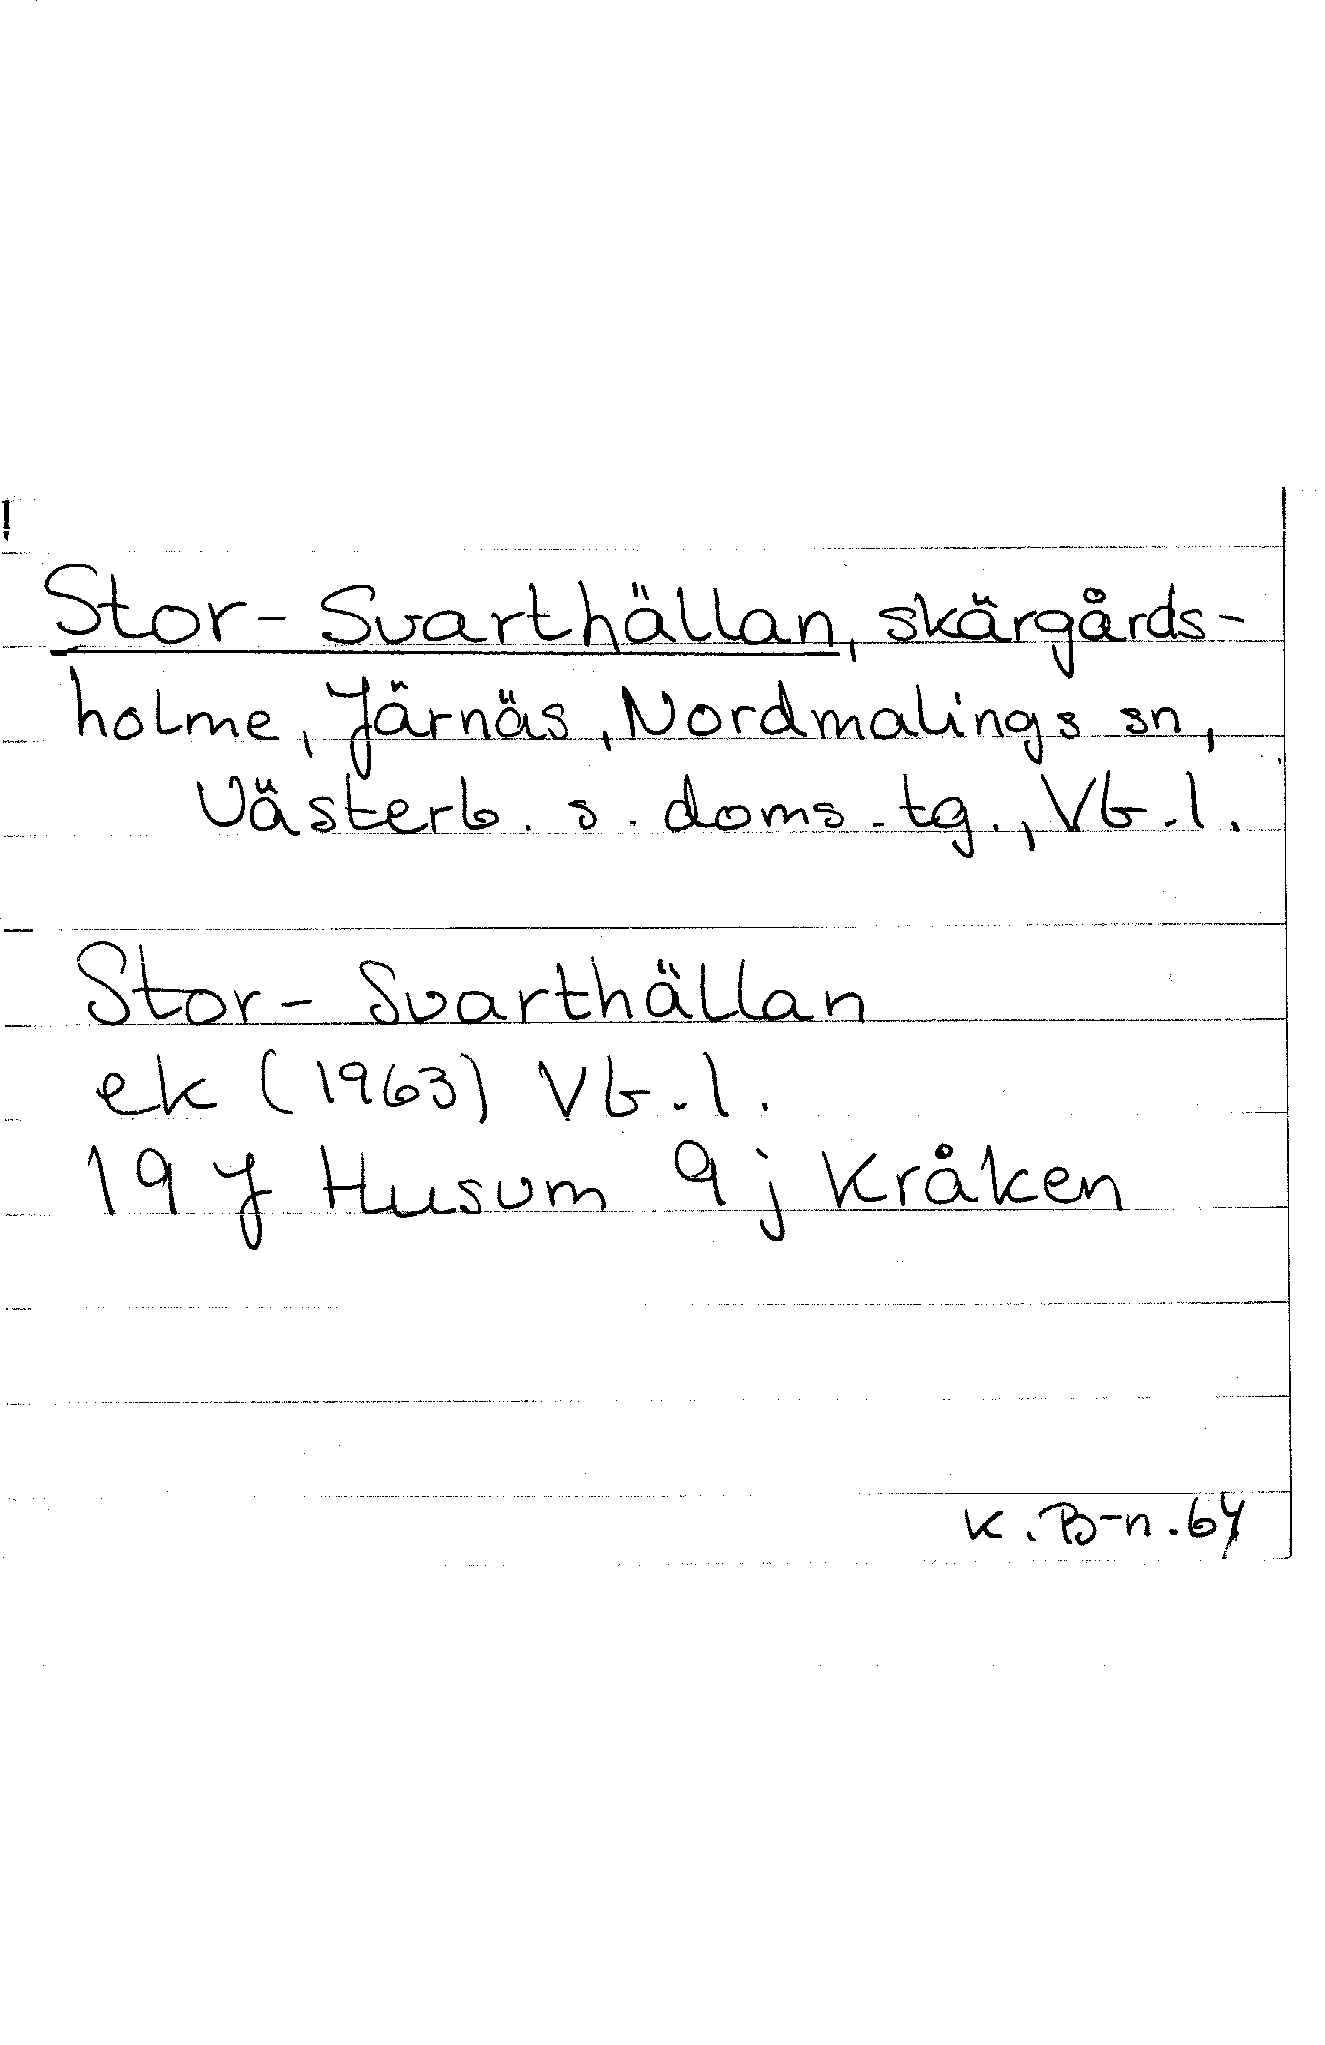 Stor-Svarthällan, skärgårds-
holme, Järnäs, Nordmalings sn,
Västerb. s. doms. tg., Vb. l.
Stor-Svarthällan
ek (1963) Vb. l.
19 J Husum 9j Kråken
K. B-n. 64